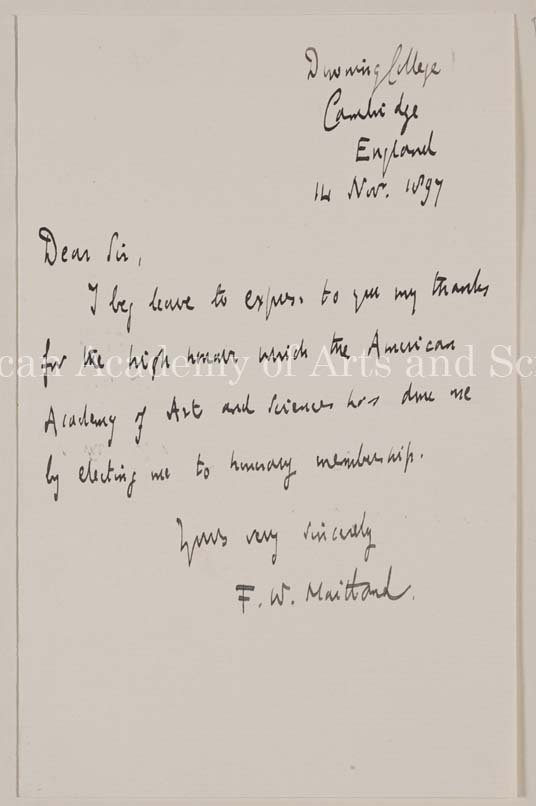 Downing College
Cambridge
England
14 Nov. 1897
Dear Sir,
I beg leave to express to you my thanks
for the high honour which the American
can Academy of Arts and Sci
Academy of Arts and Sciences has done me
by electing me to honorary membership.
Yours very sincerely
F. W. Maitland.